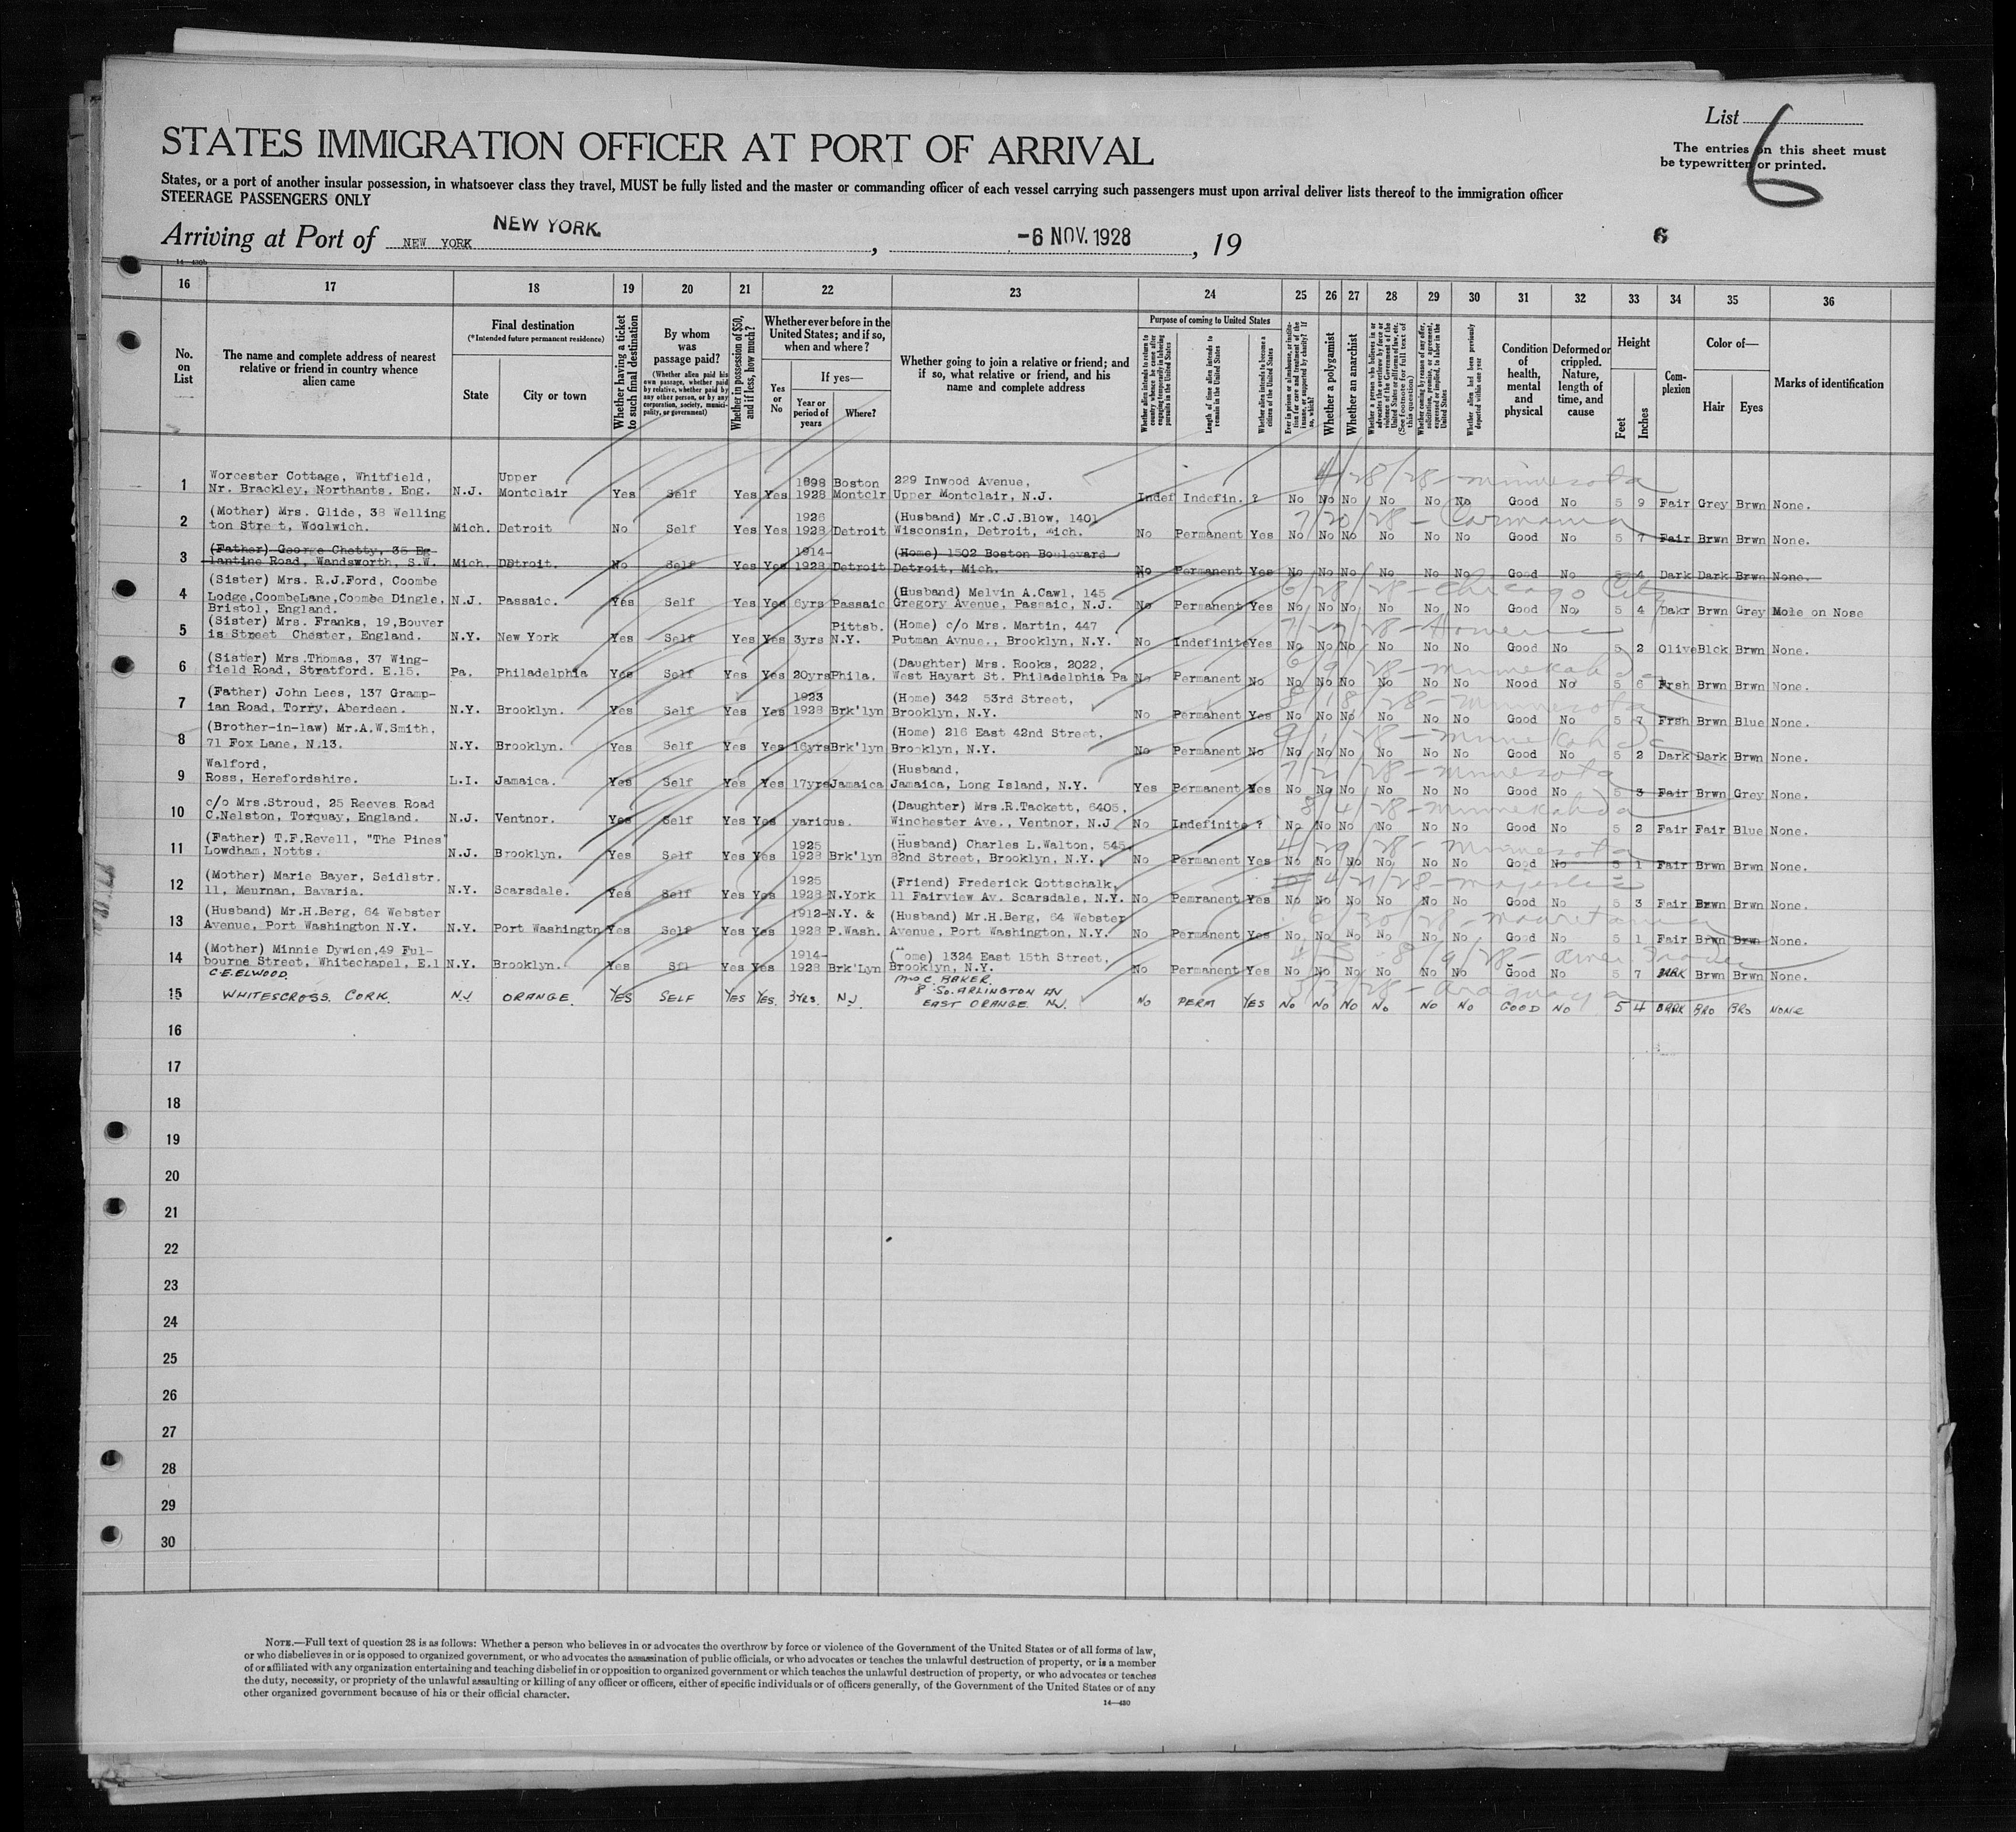 List 6
STATES IMMIGRATION OFFICER AT PORT OF ARRIVAL
The entries on this sheet must
be typewritten or printed.
States, or a port of another insular possession, in whatsoever class they travel, MUST be fully listed and the master or commanding officer of each vessel carrying such passengers must upon arrival deliver lists thereof to the immigration officer
STEERAGE PASSENGERS ONLY
Arriving at Port of NEW YORK NEW YORK. , -6 NOV. 1928 , 19
6
14-430b
16 17 18 19 20 21 22 23 24 25 26 27 28 29 30 31 32 33 34 35 36
No. on List
The name and complete address of nearest relative or friend in country whence alien came
Final destination
(*Intended future permanent residence)
State
City or town
Whether having a ticket to such final destination
By whom was passage paid?
(Whether alien paid his own passage, whether paid by relative, whether paid by any other person, or by any corporation, society, municipality, or government)
Whether in possession of $50, and if less, how much?
Whether ever before in the United States; and if so, when and where?
Yes or No
If yes—
Year or period of years
Where?
Whether going to join a relative or friend; and if so, what relative or friend, and his name and complete address
Purpose of coming to United States
Whether alien intends to return to country whence he came after engaging temporarily in laboring pursuits in the United States
Length of time alien intends to remain in the United States
Whether alien intends to become a citizen of the United States
Ever in prison or almshouse, or institution for care and treatment of the insane, or supported by charity? If so, which?
Whether a polygamist
Whether an anarchist
Whether a person who believes in or advocates the overthrow by force or violence of the Government of the United States or all forms of law, etc. (See footnote for full text of this question)
Whether coming by reason of any offer, solicitation, promise, or agreement, expressed or implied, to labor in the United States
Whether alien had been previously deported within one year
Condition of health, mental and physical
Deformed or crippled. Nature, length of time, and cause
Height
Feet
Inches
Complexion
Color of—
Hair
Eyes
Marks of identification
4/28/28 - Minnesota
1 Worcester Cottage, Whitfield, Upper 1898 Boston 229 Inwood Avenue,
Nr. Brackley, Northants, Eng. N.J. Montclair Yes Self Yes Yes 1928 Montclr Upper Montclair, N.J. Indef Indefin. ? No No No No No No Good No 5 9 Fair Grey Brwn None.
7/20/28 - Carmania
2 (Mother) Mrs. Glide, 38 Welling 1926 (Husband) Mr.C.J.Blow, 1401
ton Street, Woolwich. Mich. Detroit No Self Yes Yes 1928 Detroit Wisconsin, Detroit, Mich. No Permanent Yes No No No No No No Good No 5 7 Fair Brwn Brwn None.
3 (Father) George Chetty, 35 Eg- 1914- (Home) 1502 Boston Boulevard
lantine Road, Wandsworth, S.W. Mich. Detroit. No Self Yes Yes 1928 Detroit Detroit, Mich. No Permanent Yes No No No No No No Good No 5 4 Dark Dark Brwn None.
6/28/28 - Chicago City
4 (Sister) Mrs. R.J.Ford, Coombe (Husband) Melvin A.Cawl, 145
Lodge,CoombeLane,Coombe Dingle, N.J. Passaic. Yes Self Yes Yes 6yrs Passaic Gregory Avenue, Passaic, N.J. No Permanent Yes No No No No No No Good No 5 4 Dakr Brwn Grey Mole on Nose
Bristol, England.
5 (Sister) Mrs. Franks, 19,Bouver Pittsb. (Home) c/o Mrs. Martin, 447
is Street Chester, England. N.Y. New York Yes Self Yes Yes 3yrs N.Y. Putman Avnue., Brooklyn, N.Y. No Indefinite Yes No No No No No No Good No 5 2 Olive Blck Brwn None.
6/9/28 - Minnekahda
6 (Sister) Mrs.Thomas, 37 Wing- (Daughter) Mrs. Rooks, 2022,
field Road, Stratford. E.15. Pa. Philadelphia Yes Self Yes Yes 20yrs Phila. West Hayart St. Philadelphia Pa No Permanent No No No No No No No Nood No 5 6 Frsh Brwn Brwn None.
8/18/28 - Minnesota
7 (Father) John Lees, 137 Gramp- 1923 (Home) 342 53rd Street,
ian Road, Torry, Aberdeen. N.Y. Brooklyn. Yes Self Yes Yes 1928 Brk'lyn Brooklyn, N.Y. No Permanent Yes No No No No No No Good No 5 7 Frsh Brwn Blue None.
9/1/28 - Minnekahda
8 (Brother-in-law) Mr.A.W.Smith, (Home) 216 East 42nd Street,
71 Fox Lane, N.13. N.Y. Brooklyn. Yes Self Yes Yes 16yrs Brk'lyn Brooklyn, N.Y. No Permanent No No No No No No No Good No 5 2 Dark Dark Brwn None.
7/21/28 - Minnesota
9 Walford, (Husband,
Ross, Herefordshire. L.I. Jamaica. Yes Self Yes Yes 17yrs Jamaica Jamaica, Long Island, N.Y. Yes Permanent Yes No No No No No No Good No 5 3 Fair Brwn Grey None.
8/4/28 - Minnekahda
10 c/o Mrs.Stroud, 25 Reeves Road (Daughter) Mrs.R.Tackett, 6405,
C.Nelston, Torquay, England. N.J. Ventnor. Yes Self Yes Yes various. Winchester Ave., Ventnor, N.J No Indefinite ? No No No No No No Good No 5 2 Fair Fair Blue None.
4/29/28 - Minnesota
11 (Father) T.F.Revell, "The Pines" 1925 (Husband) Charles L.Walton, 545
Lowdham, Notts. N.J. Brooklyn. Yes Self Yes Yes 1928 Brk'lyn 82nd Street, Brooklyn, N.Y. No Permanent Yes No No No No No No Good No 5 1 Fair Brwn Brwn None.
4/21/28 - Majestic
12 (Mother) Marie Bayer, Seidlstr. 1925 (Friend) Frederick Gottschalk,
11, Meurnan, Bavaria. N.Y. Scarsdale. Yes Self Yes Yes 1928 N.York 11 Fairview Av. Scarsdale, N.Y. No Pemranent Yes No No No No No No Good No 5 3 Fair Brwn Brwn None.
6/30/28 - Mauretania
13 (Husband) Mr.H.Berg, 64 Webster 1912- N.Y. & (Husband) Mr.H.Berg, 64 Webster
Avenue, Port Washington N.Y. N.Y. Port Washingtn Yes Self Yes Yes 1928 P.Wash. Avenue, Port Washington, N.Y. No Permanent Yes No No No No No No Good No 5 1 Fair Brwn Brwn None.
14 (Mother) Minnie Dywien,49 Ful- 1914- ome) 1324 East 15th Street,
bourne Street, Whitechapel, E.1 N.Y. Brooklyn. Yes Sfl Yes Yes 1928 Brk'Lyn Brooklyn, N.Y. No Permanent Yes No No No No No No Good No 5 7 DARK Brwn Brwn None.
3/3/28 - Araguaya
15 C.E. ELWOOD. Mrs C. BAKER.
WHITESCROSS. CORK. NJ ORANGE. YES SELF YES YES. 3YRS. NJ. 8 So. ARLINGTON AV No PERM YES No No No No No No GOOD No 5 4 DARK BRO BRO NONE
EAST ORANGE NJ.
16
17
18
19
20
21
22
23
24
25
26
27
28
29
30
NOTE.—Full text of question 28 is as follows: Whether a person who believes in or advocates the overthrow by force or violence of the Government of the United States or of all forms of law,
or who disbelieves in or is opposed to organized government, or who advocates the assassination of public officials, or who advocates or teaches the unlawful destruction of property, or is a member
of or affiliated with any organization entertaining and teaching disbelief in or opposition to organized government or which teaches the unlawful destruction of property, or who advocates or teaches
the duty, necessity, or propriety of the unlawful assaulting or killing of any officer or officers, either of specific individuals or of officers generally, of the Government of the United States or of any
other organized government because of his or their official character.
14—430